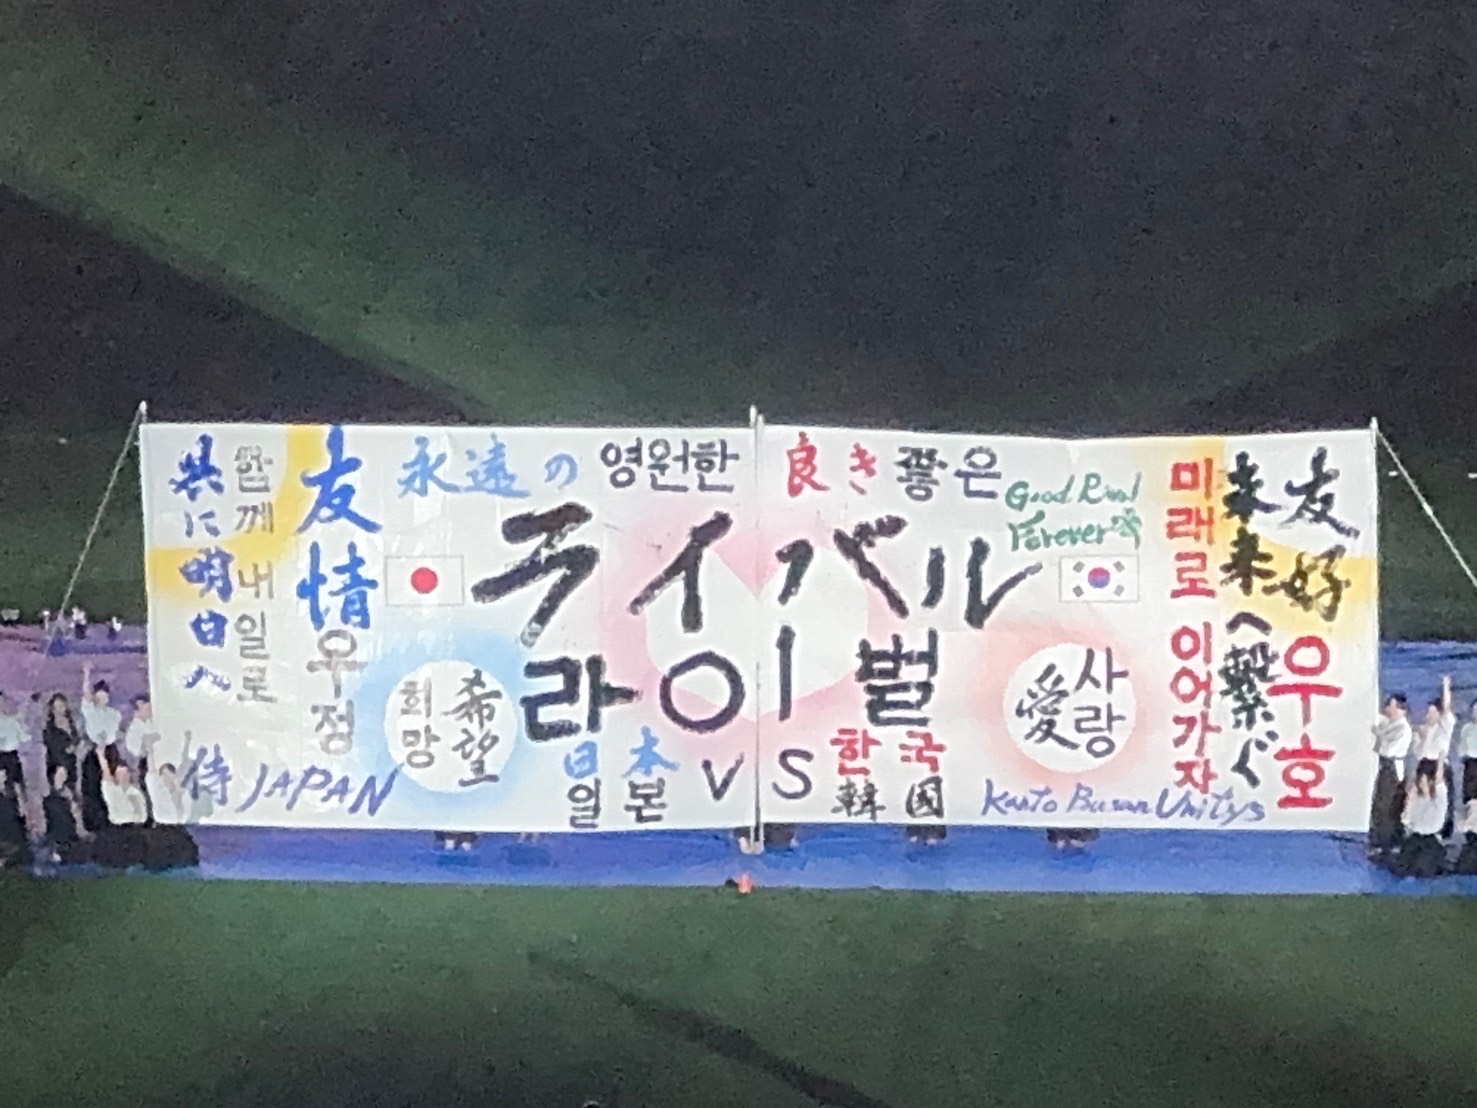 共に明日へ
함께 내일로
友情
우정
永遠の 영원한
良き 좋은
Good Rival
Forever
ライバル
라이벌
希望
희망
愛
사랑
日本 VS 한국
일본 韓国
侍 JAPAN
Kanto Busan Unitys
미래로 이어가자
未来へ繋ぐ
友好
우호